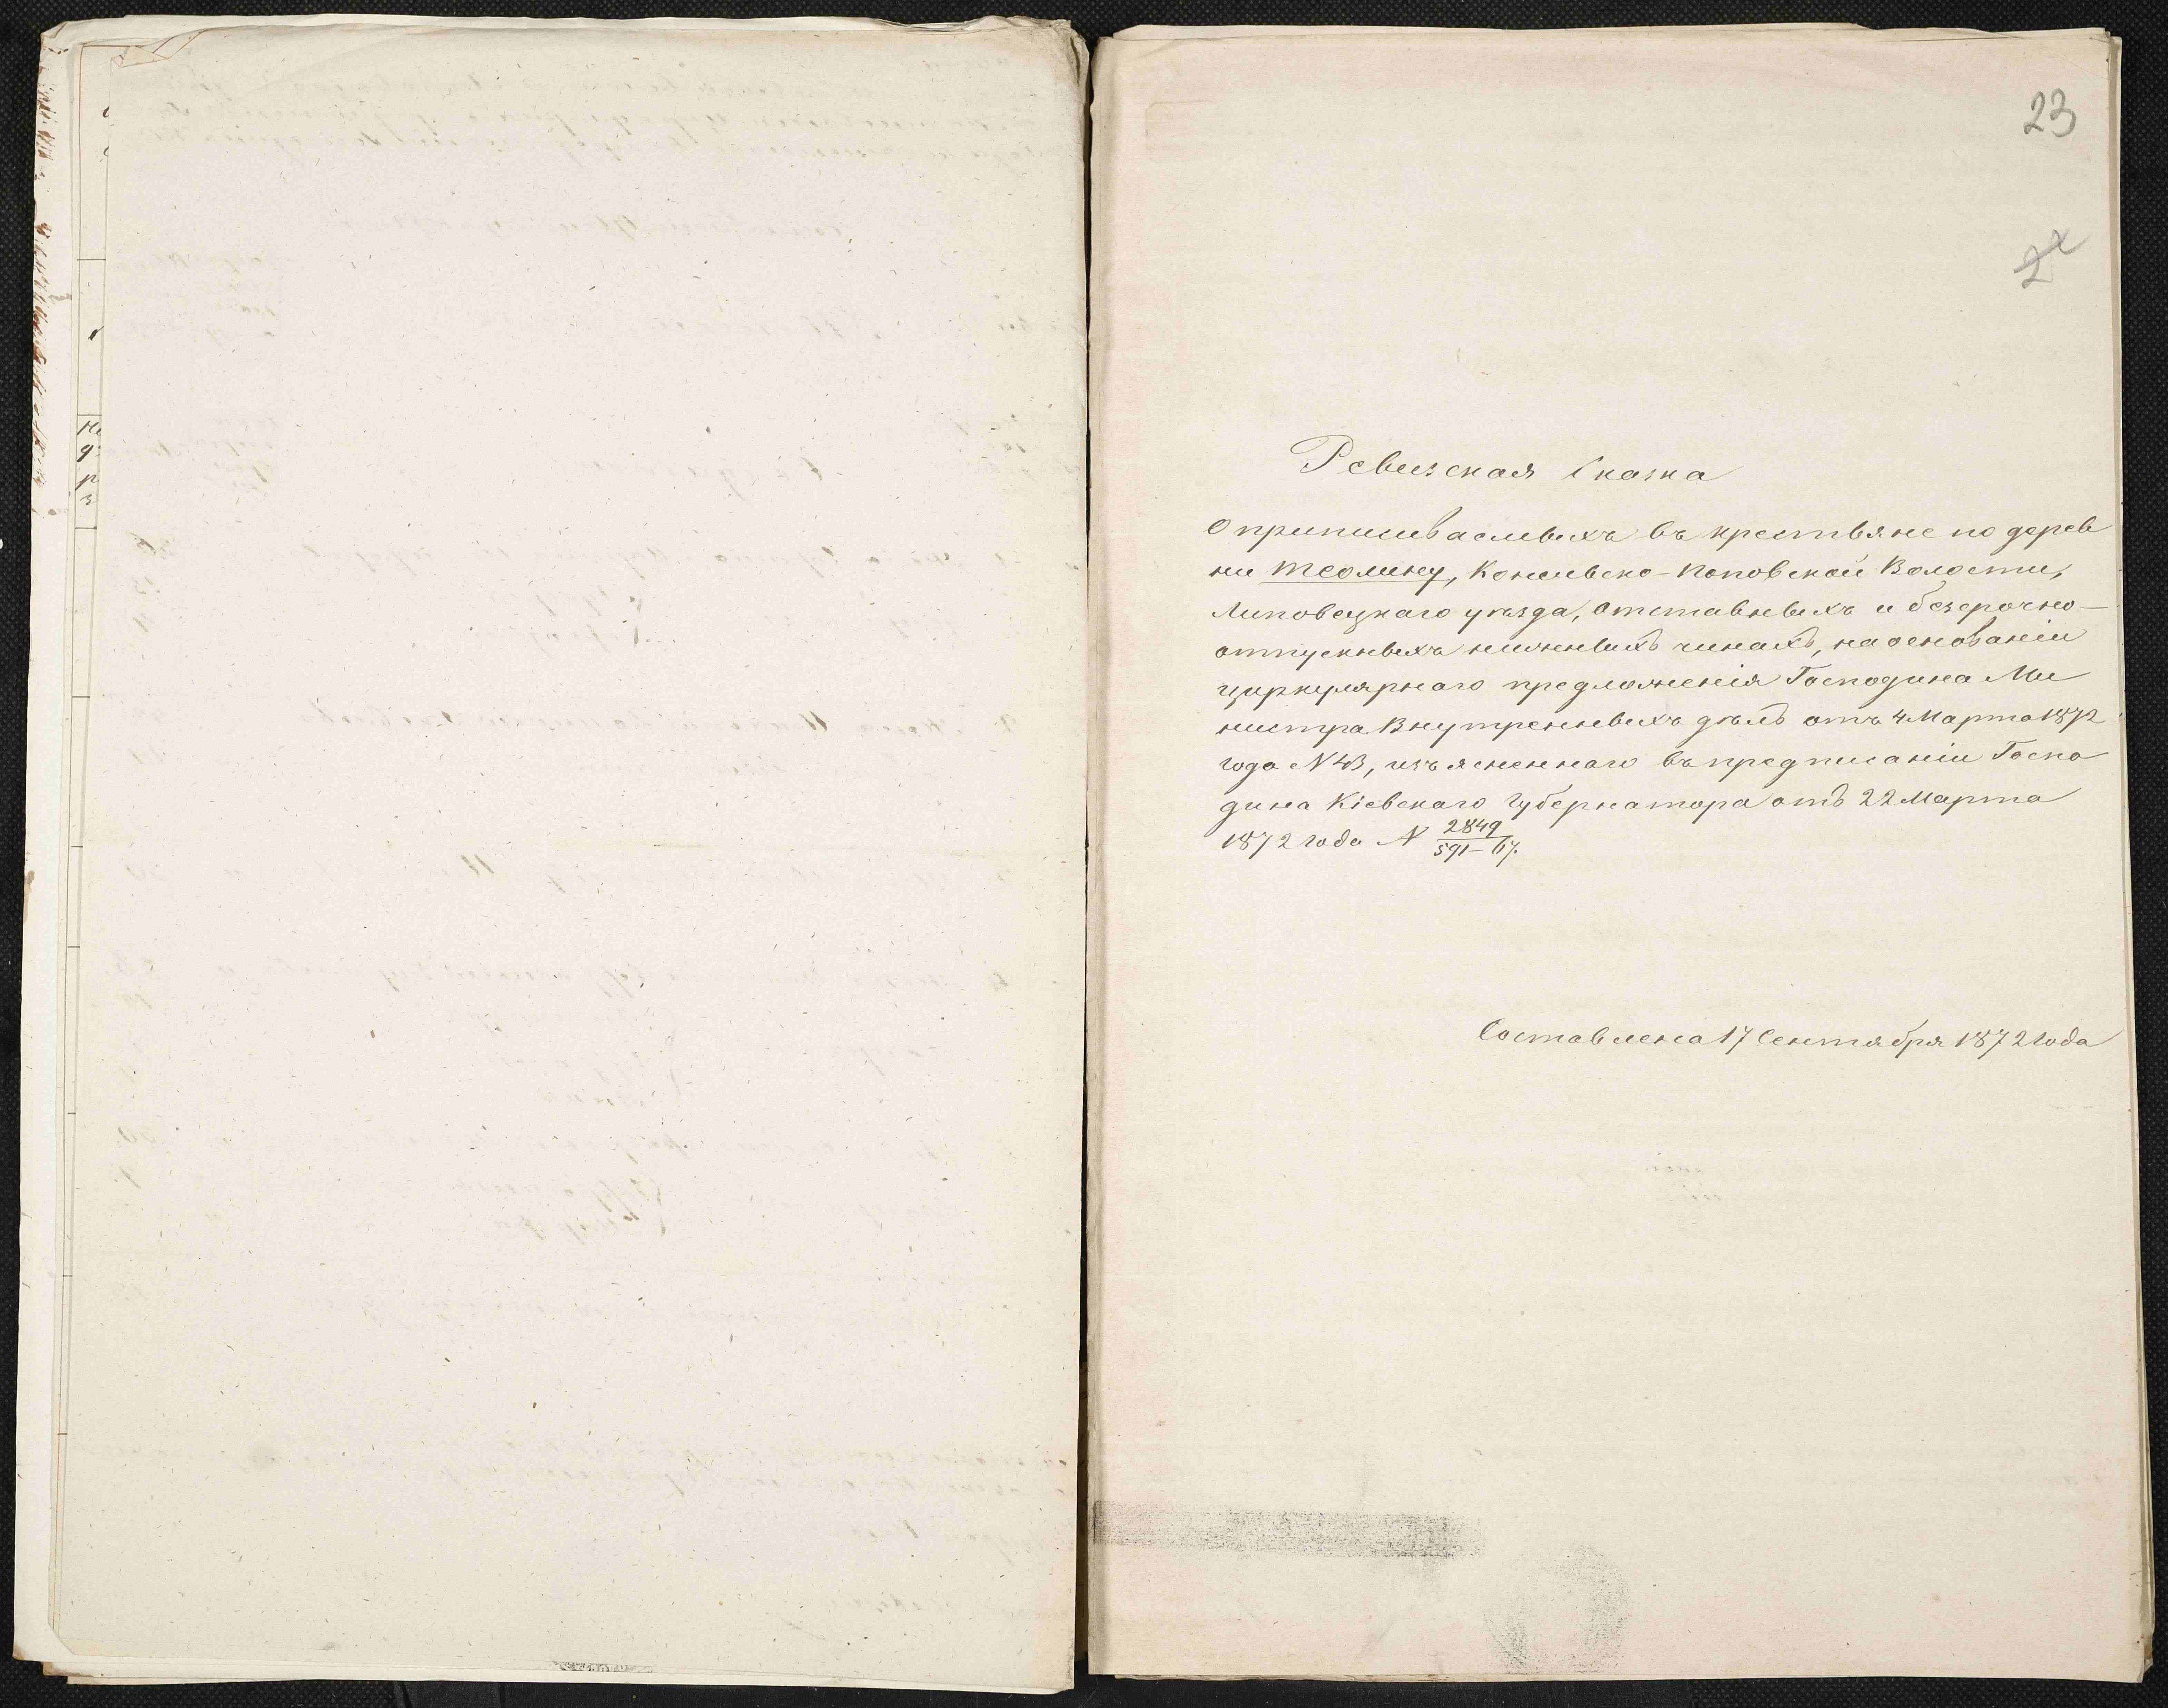 23
Ревизская Сказка
О приписываемыхъ въ крестьяне по дерев
ни Теолину, Коневско-Поповской Волости,
Липовецкаго уѣзда, отставныхъ и безсрочно-
отпускныхъ нижныхъ чинахъ, на основаніи
циркулярнаго предложенія Господина Ми
нистра Внутренныхъ дѣлъ отъ 4 Марта 1872
года N 43, изъясненнаго въ предписаніи Госпо
дина Кіевскаго Губернатора отъ 22 Марта
1872 года N 2849/591-67.
Составлена 17 Сентября 1872 года